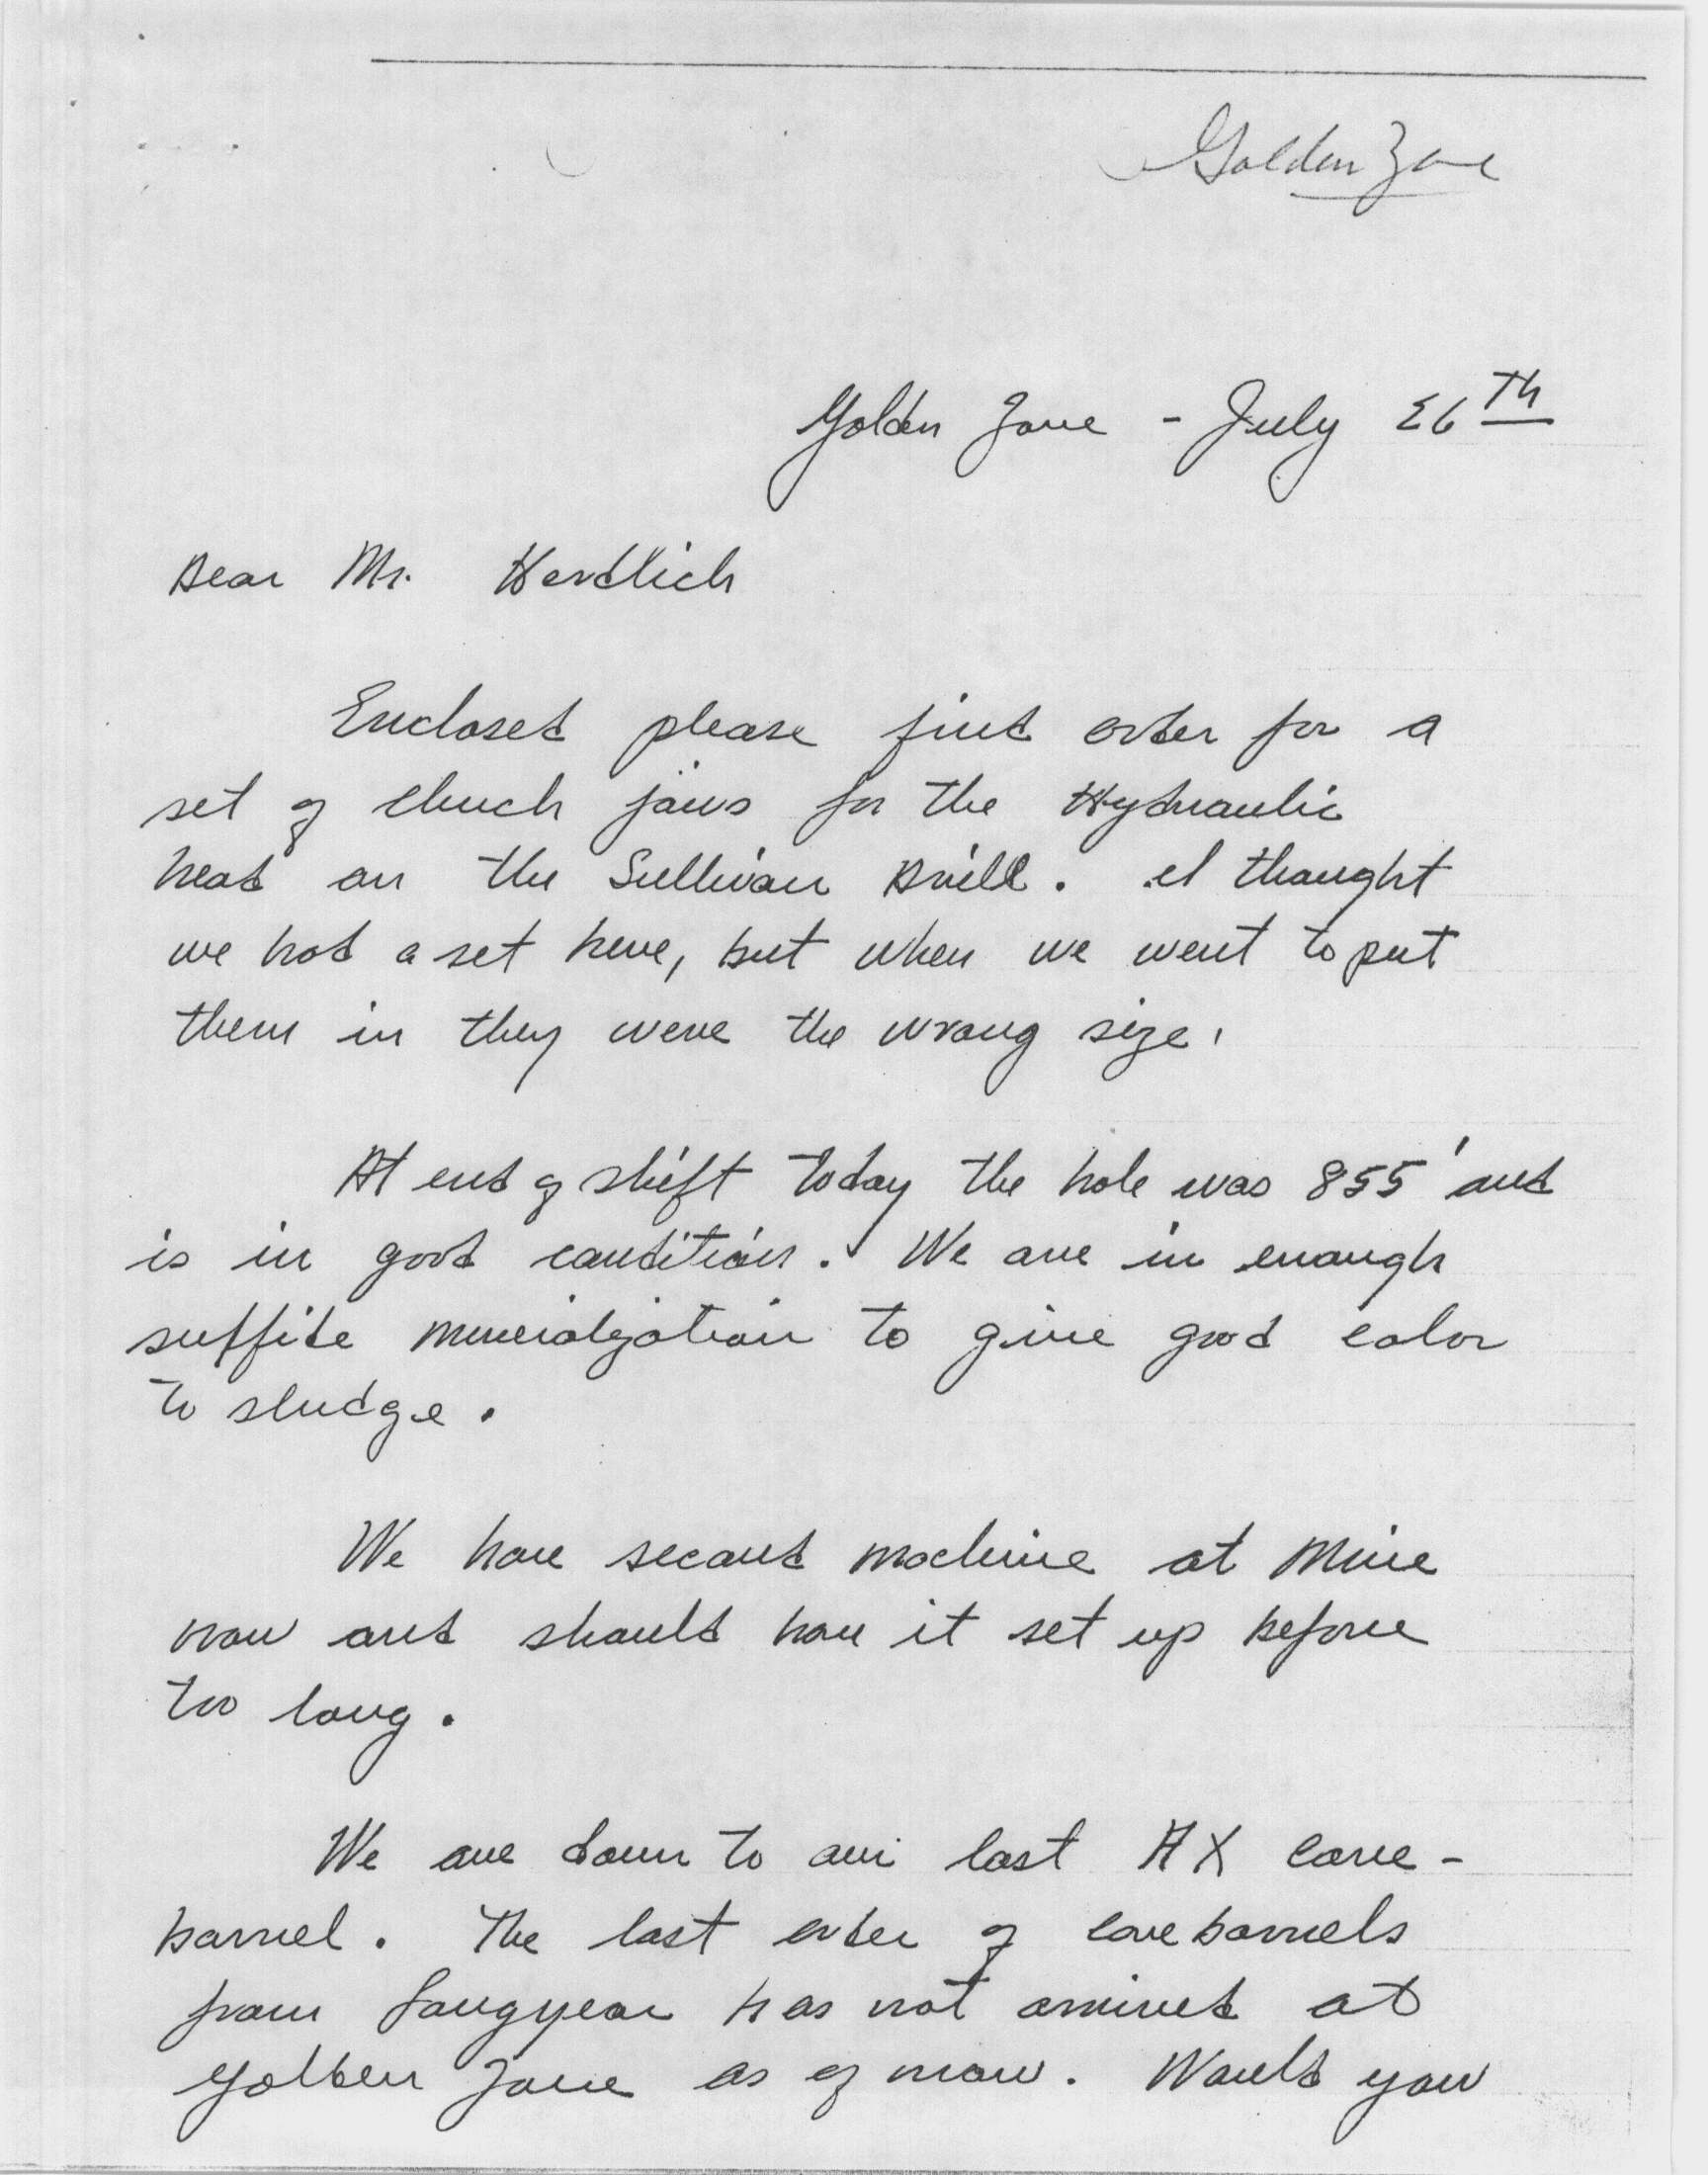 Golden Zone
Golden Zone - July 26th
Dear Mr. Herdlich
Enclosed please find order for a
set of chuck jaws for the Hydraulic
head on the Sullivan Drill. I thought
we had a set here, but when we went to put
them in they were the wrong size.
At end of shift today the hole was 855' and
is in good condition. We are in enough
sulfide mineralization to give good color
to sludge.
We have second machine at Mine
now and should have it set up before
too long.
We are down to our last AX core-
barrel. The last order of core barrels
from Longyear has not arrived at
Golden Zone as of now. Would you